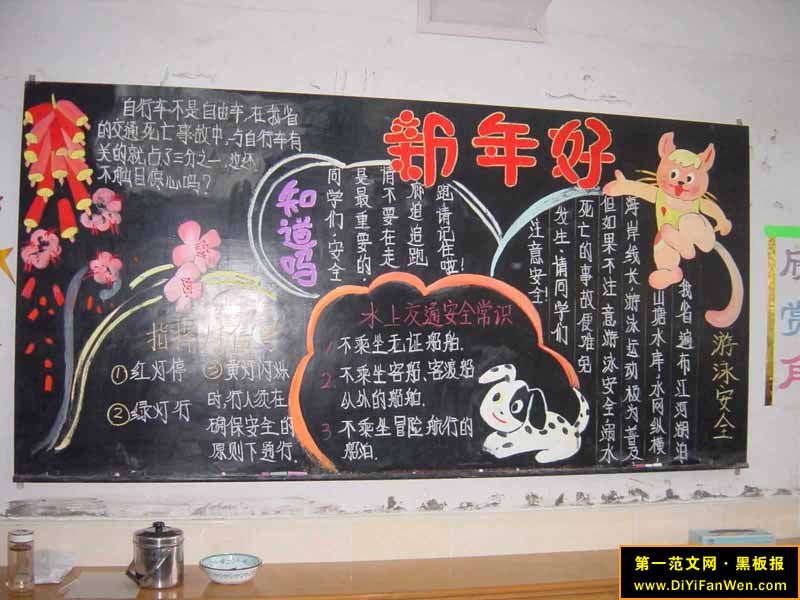 新年好
自行车不是自由车，在我省
的交通死亡事故中，与自行车有
关的就占了三分之一，这还
不触目惊心吗？
知道吗
同学们，安全
是最重要的
情不要在走
廊追追跑
跑请记住啦！
指挥灯信号
①红灯停
②绿灯行
③黄灯闪烁
时，行人须在
确保安全的
原则下通行，
水上交通安全常识
1 不乘坐无证船舶．
2. 不乘坐客船、客渡船
以外的船舶．
3 不乘坐冒险航行的
船舶．
游泳安全
我省遍布江河湖泊
山塘水库，水网纵横
海岸线长，游泳运动极为普及
但如果不注意游泳安全，溺水
死亡的事故便难免
发生，请同学们
注意安全！
第一范文网·黑板报
www.DiYiFanWen.com